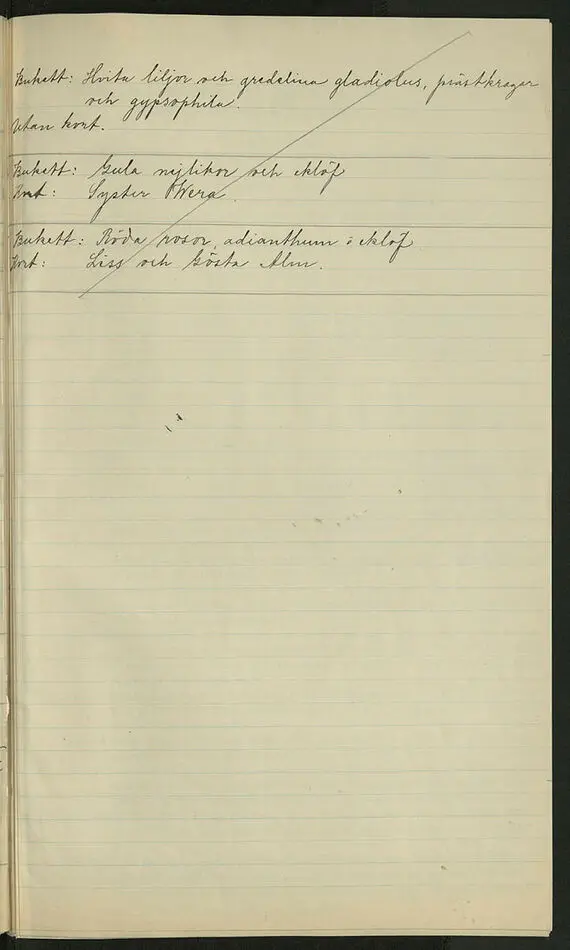 Bukett: Hvita liljor och gredelina gladiolus, prästkragar
och gypsophila.
Utan kort.
Bukett: Gula nejlikor och eklöf
Kort: Syster Wera.
Bukett: Röda rosor, adianthum o eklöf
Kort: Liss och Gösta Alm.